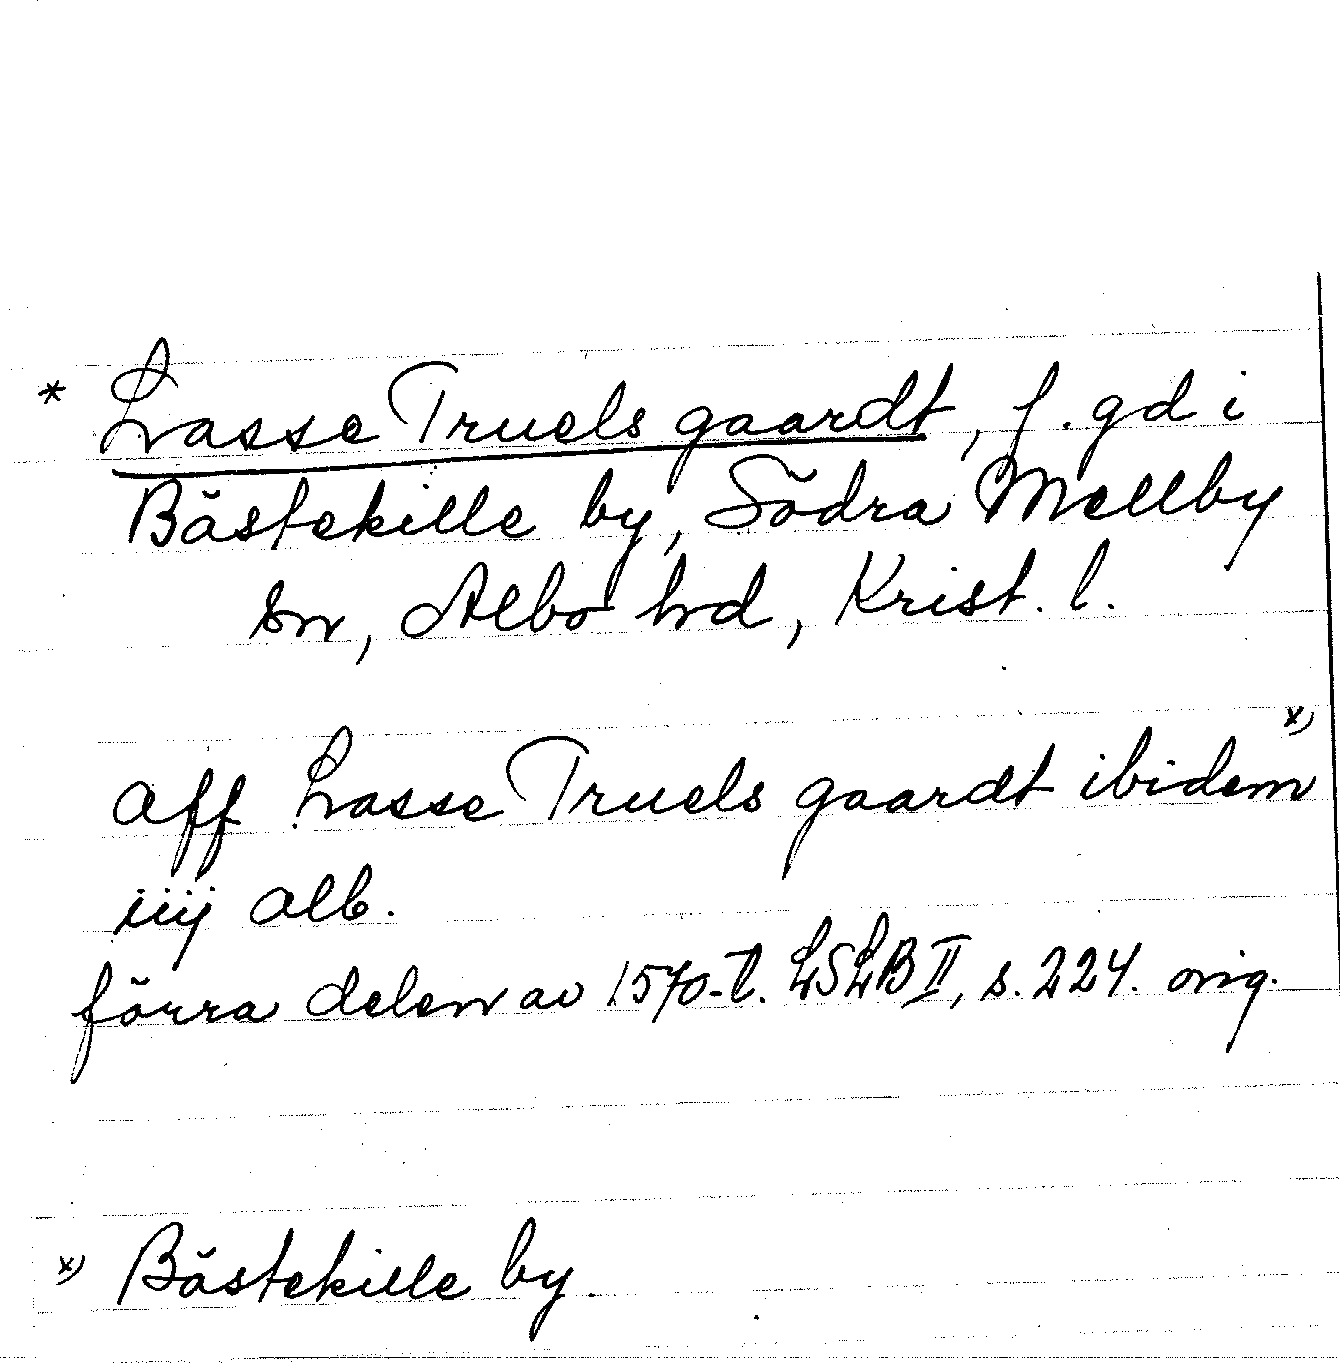 * Lasse Truels gaardt, f. gd i
Bästekille by, Södra Mellby
sn, Albo hd, Krist. l.
x)
aff Lasse Truels gaardt ibidem
iiij alb.
förra delen av 1570-t. LSLB II, s. 224. orig.
x) Bästekille by.